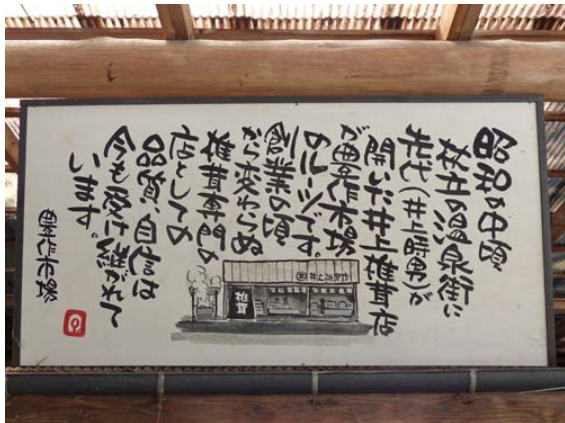 昭和の中頃
杖立の温泉街に
先代(井上時男)が
開いた井上椎茸店
が豊作市場
のルーツです。
創業の頃
から変わらぬ
椎茸専門の
店としての
品質、自信は
今も受け継がれて
います。
豊作市場
椎茸